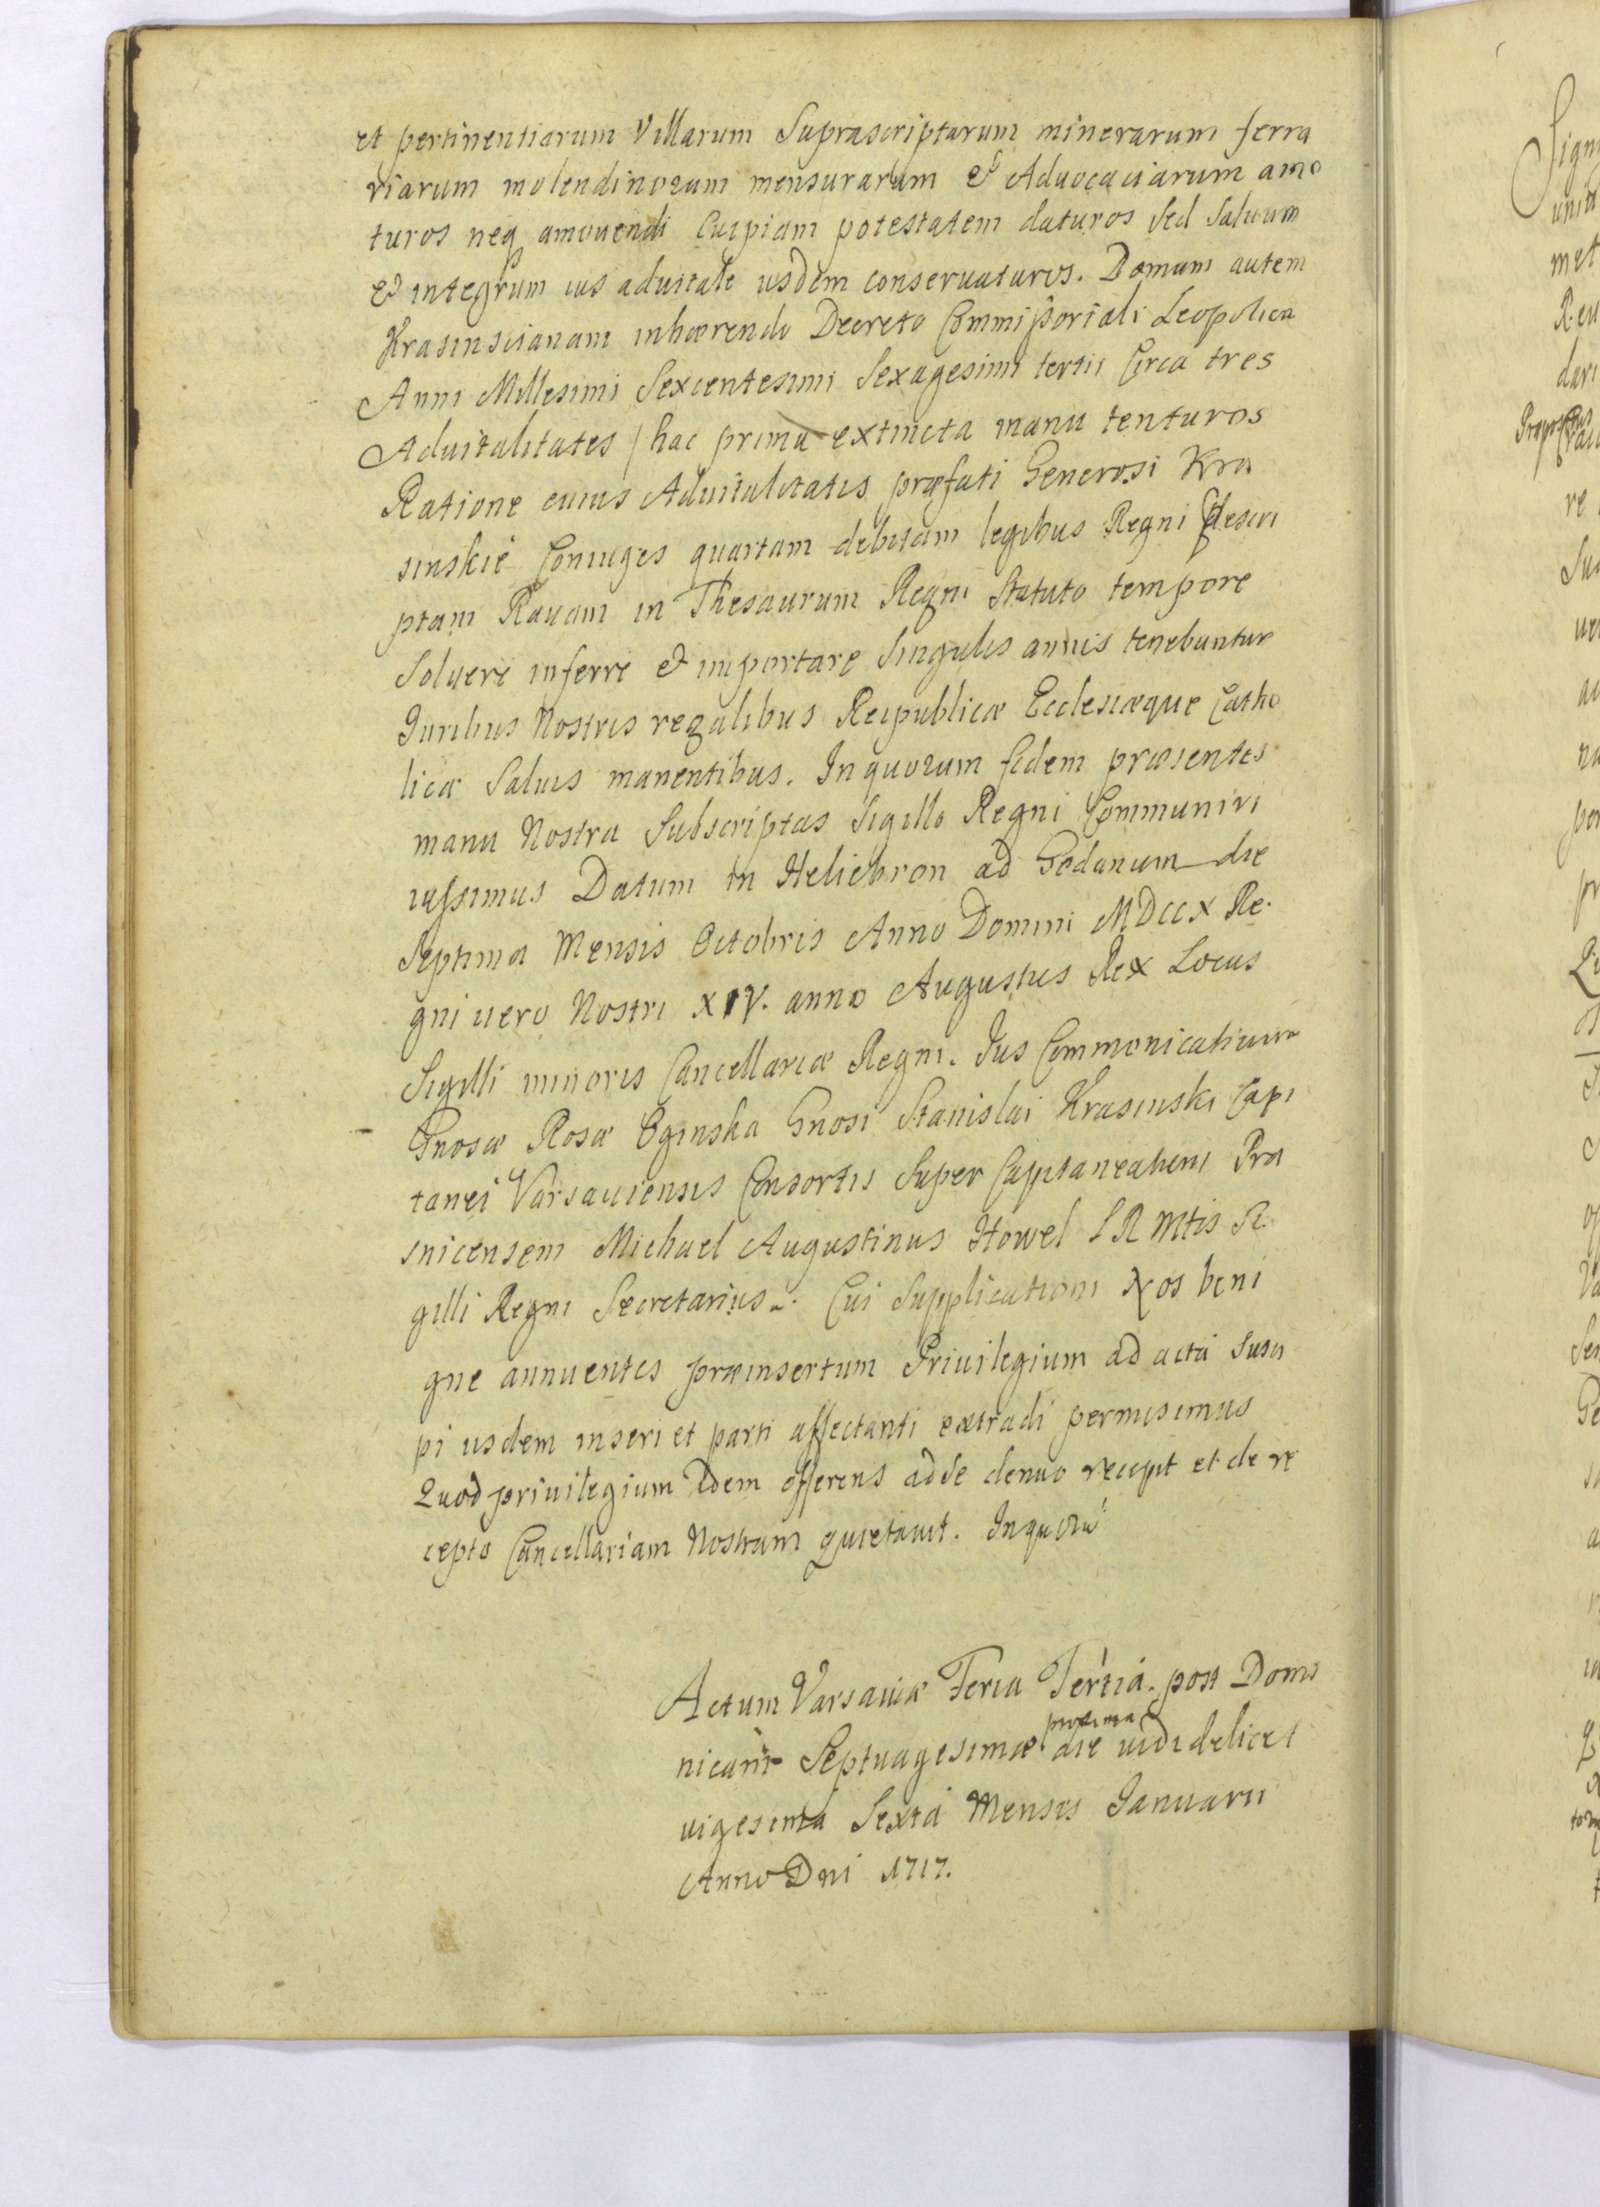 et pertinentiarum Villarum Suprascriptarum minerarum ferra
riarum molendinorum mensurarum & Aduocaciarum amo
turos neq amouendi Cuipiam potestatem daturos sed saluum
& integrum ius aduitale iisdem conseruaturos. Domum autem
Krasinscianam inhærendo Decreto Commissoriali Leopolien
Anni Millesimi Sexcentesimi Sexagesimi tertii Circa tres
Aduitalitates / hac prima extincta manu tenturos
Ratione cuius Aduitalitatis præfati Generosi Kra
sinskie Coniuges quartam debitam legibus Regni descri
ptam Rauam in Thesaurum Regni Statuto tempore
Soluere inferre & importare singulis annis tenebuntur
Juribus Nostris regalibus Reipublicæ Ecclesiæque Catho
licæ Saluis manentibus. In quorum fidem præsentes
manu Nostra Subscriptas Sigillo Regni Communiri
iussimus Datum in Heliebron ad Gedanum die
Septima Mensis Octobris Anno Domini MDCCX Re.
gni uero Nostri XIV. anno Augustus Rex Locus
Sigilli minoris Cancellariæ Regni. Jus Commonicatiuum
Gnosæ Rosæ Oginska Gnosi Stanislai Krasinski Capi
tanei Varsauiensis Consortis Super Capitaneatum Pra
snicensem Michael Augustinus Howel S R Mtis Si
gilli Regni Secretarius. Cui Supplicationi Nos beni
gne annuentes præinsertum Priuilegium ad acta susci
pi iisdem inseri et parti affectanti extradi permisimus
Quod priuilegium idem offerens ad se denuo recepit et de re
cepto Cancellariam Nostram quietauit. In quorū
Actum Varsauiæ Feria Tertiá. post Domi
nicam Septuagesimæ proxima die uidelicet
uigesima Sextá Mensis Januarii
Anno Dni 1717.